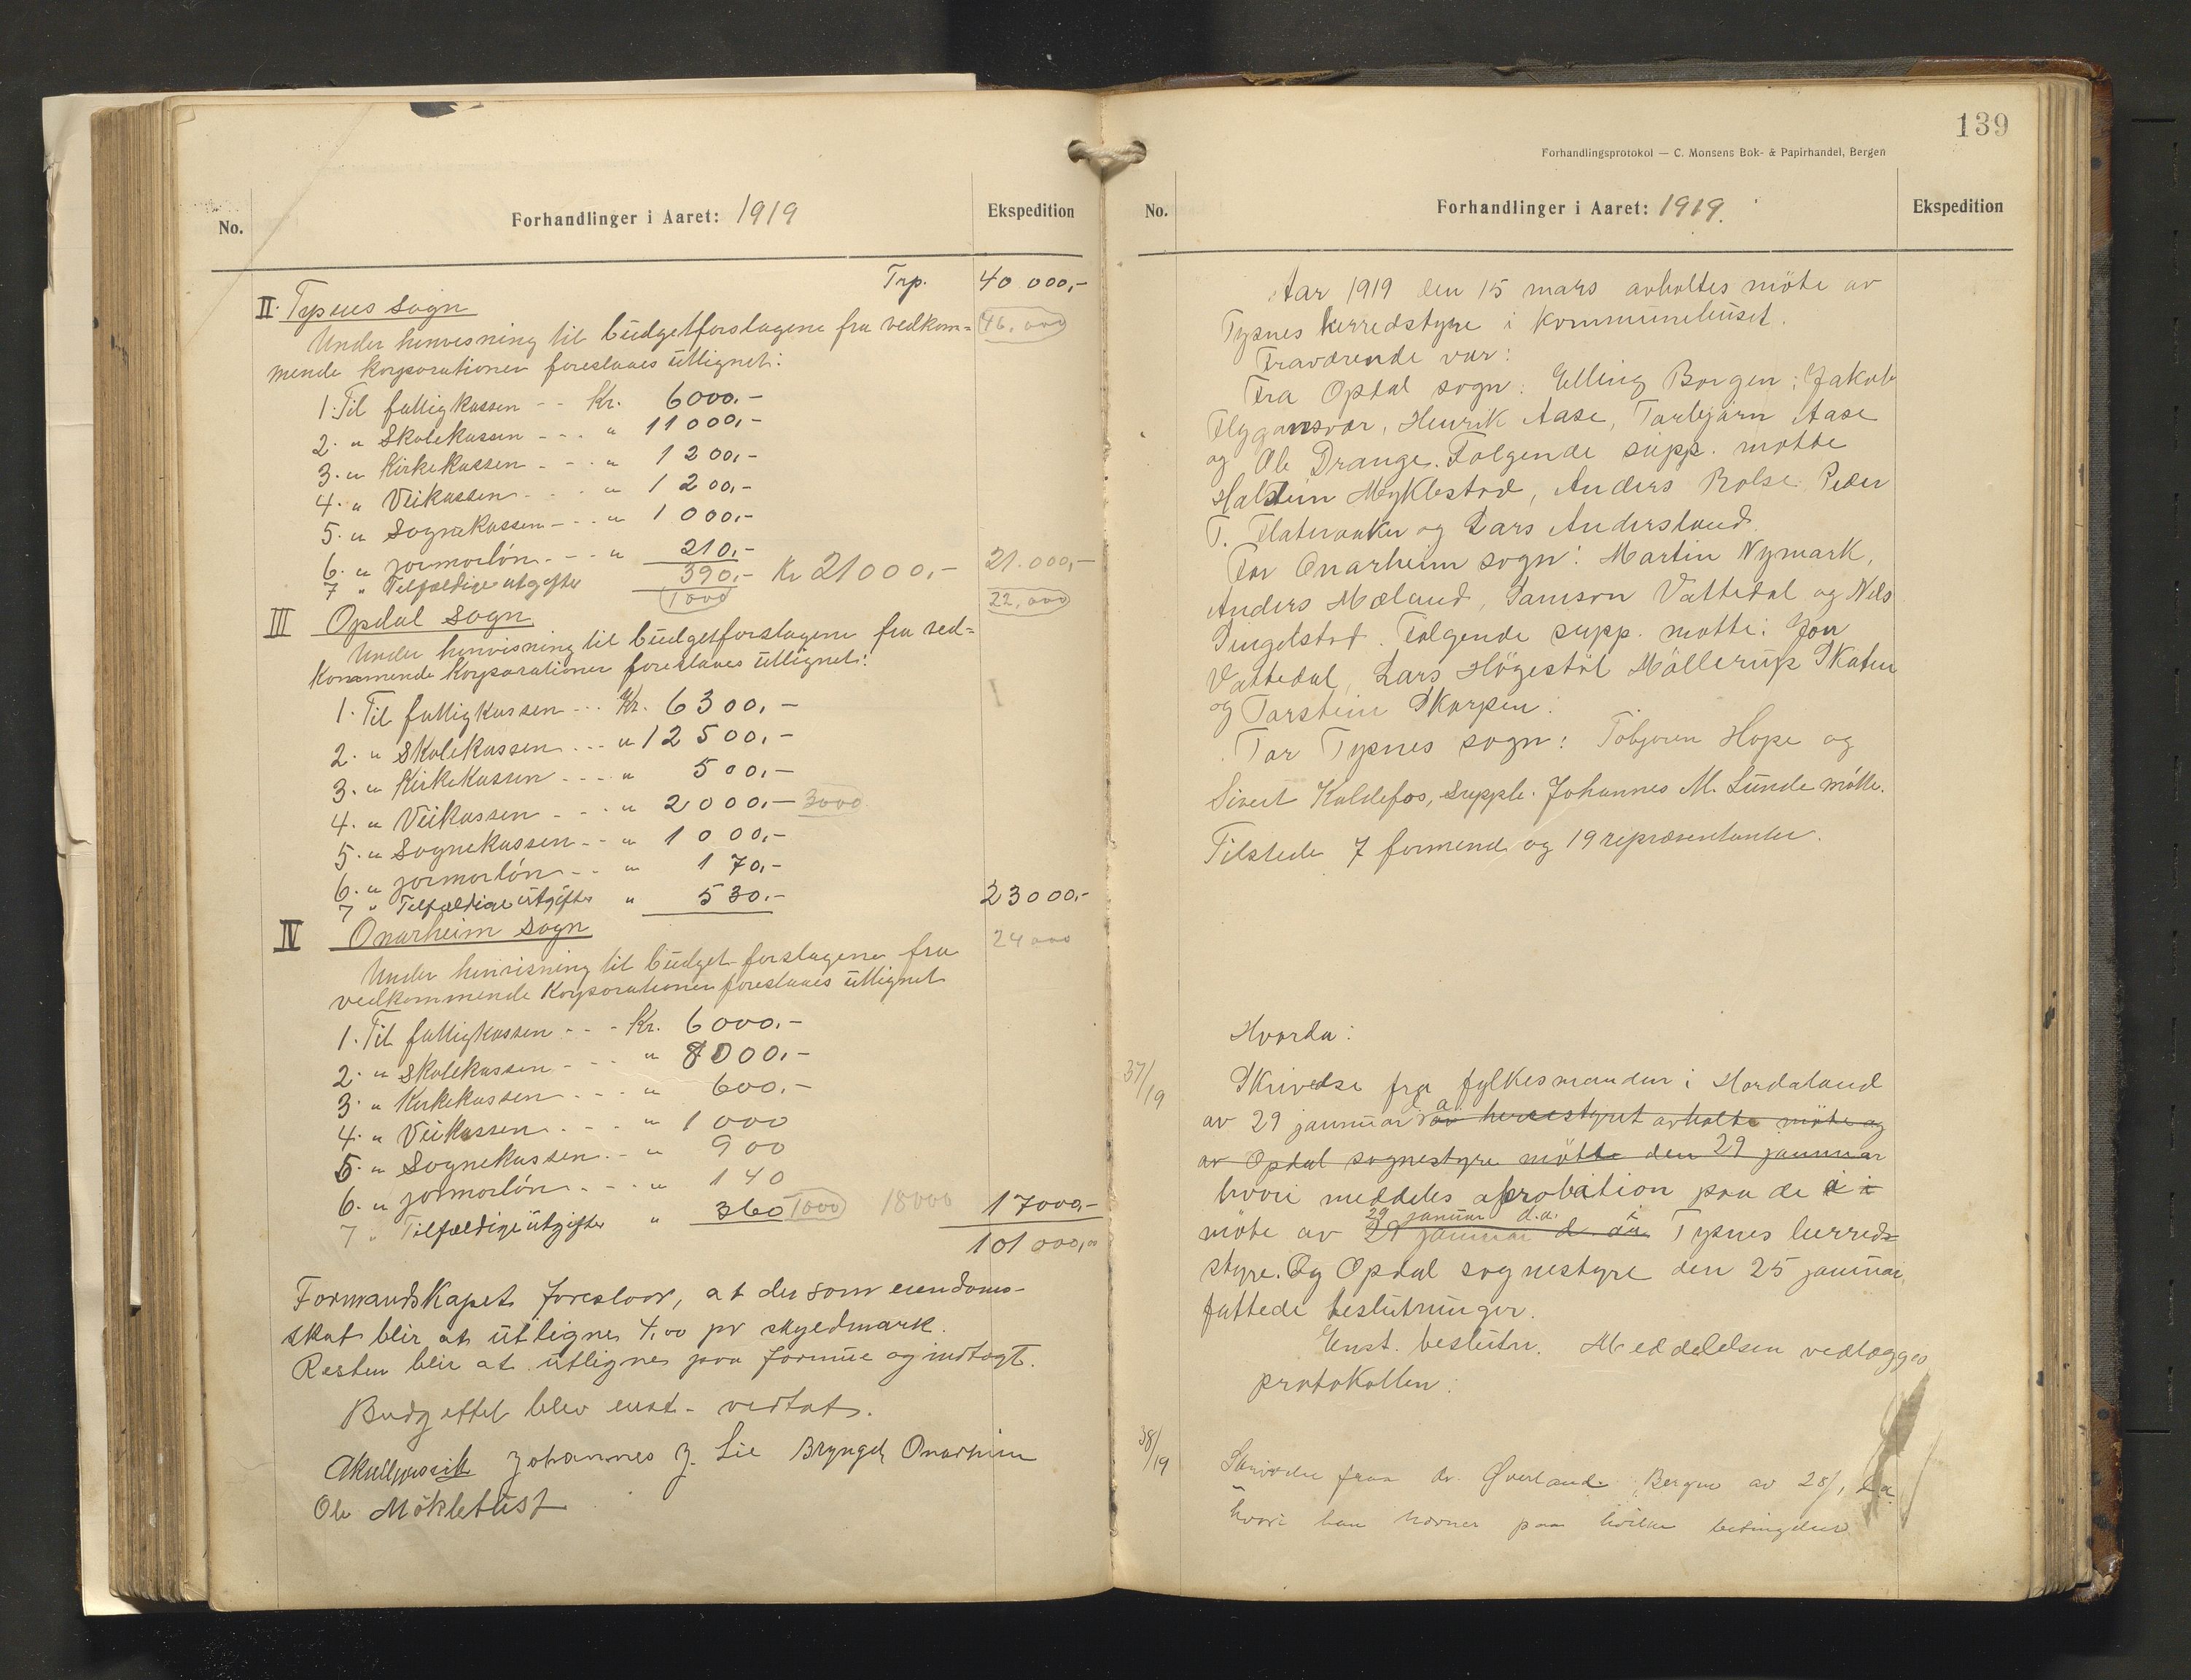 No.
Forhandlinger i Aaret: 1919
Ekspedition
Trp. 40 000,-
II. Tysnes sogn
Under henvisning til budgetforslagene fra vedkom- 46,000
mende korporationer foreslaaes utlignet:
1. Til fattigkassen - - Kr. 6000.-
2. " Skolekassen - - . " 11000,-
3. " Kirkekassen - - . " 1 200,-
4. " Veikassen - . . " 1 200,-
5. " Sognekassen - - . " 1 000,-
6. " jormorlön. - - " 210,-
7 " Tilfældige utgifter 390,- Kr 21000,- 21.000,-
1000 22,000
III Opdal Sogn
Under henvisning til budgetforslagene fra ved-
kommende korporationer foreslaaes utlignet:
1. Til fattigkassen - .. Kr. 6300,-
2. " Skolekassen ... " 12500,-
3. " Kirkekassen - - . - " 500,-
4. " Veikassen - . . " 2000,- 3000
5. " Sognekassen - - " 1000,-
6. " jormorlön - . " 170,-
7 " Tilfældige utgifter " 530.- 23000,-
IV Onarheim Sogn
24000
Under henvisning til budget-forslagene fra
vedkommende korporationer foreslaaes utlignet
1. Til fattigkassen - - - Kr. 6000.-
2. " Skolekassen - - . " 8000.-
3. " Kirkekassen . - . " 600.-
4. " Veikassen . - . " 1000
5. " Sognekassen . - " 900
6. " jormorlön . - . " 140
7 " Tilfældige utgifter " 360 1000 18000 17000,-
101 000,00
Formandskapet foreslaar, at der som eiendoms-
skat blir at utligne 4,00 pr skyldmark.
Resten blir at utligne paa formue og indtægt.
Budgettet blev enst. vedtat.
Johannes J. Lie Brynjel Onarheim
Ole Möklebust
139
Forhandlingsprotokol — C. Monsens Bok- & Papirhandel, Bergen
No.
Forhandlinger i Aaret: 1919.
Ekspedition
Aar 1919 den 15 mars avholtes möte av
Tysnes herredstyre i kommunehuset.
Fraværende var:
Fra Opdal sogn: Elling Borgen; Jakob
Flygansvær, Henrik Aase, Torbjörn Aase
og Ole Drange. Følgende supp. mötte
Halstein Myklestad, Anders Rolse Peder
T. Flateraaker og Lars Andersland.
For Onarheim sogn: Martin Nymark,
Anders Mæland, Samson Vattedal og Nils
Singelstad. Følgende supp. mötte: Jon
Vattedal, Lars Högestöl Möllerup Skaten
og Torstein Skorpen.
For Tysnes sogn: Tobjoren Hope og
Sivert Kaldefos, supple. Johannes M. Lunde mötte.
Tilstede 7 formend og 19 repræsentanter.
Hvorda:
37/19
Skrivelse fra fylkesmanden i Hordaland
av 29 januar d a av herredstyret avholte möte og
av Opdal sognestyre mötte den 29 januar
hvori meddeles aprobation paa de i
29 januar d.a.
möte av 29 januar d. a. i Tysnes herreds-
styre. Og Opdal sognestyre den 25 januar
fattede beslutninger.
Enst. beslutn. Meddelelsen vedlægges
protokollen.
38/19
Skrivelse fraa dr. Øverland. Bergen av 28/1 d.a.
hvori han nævner paa hvilke betingelser